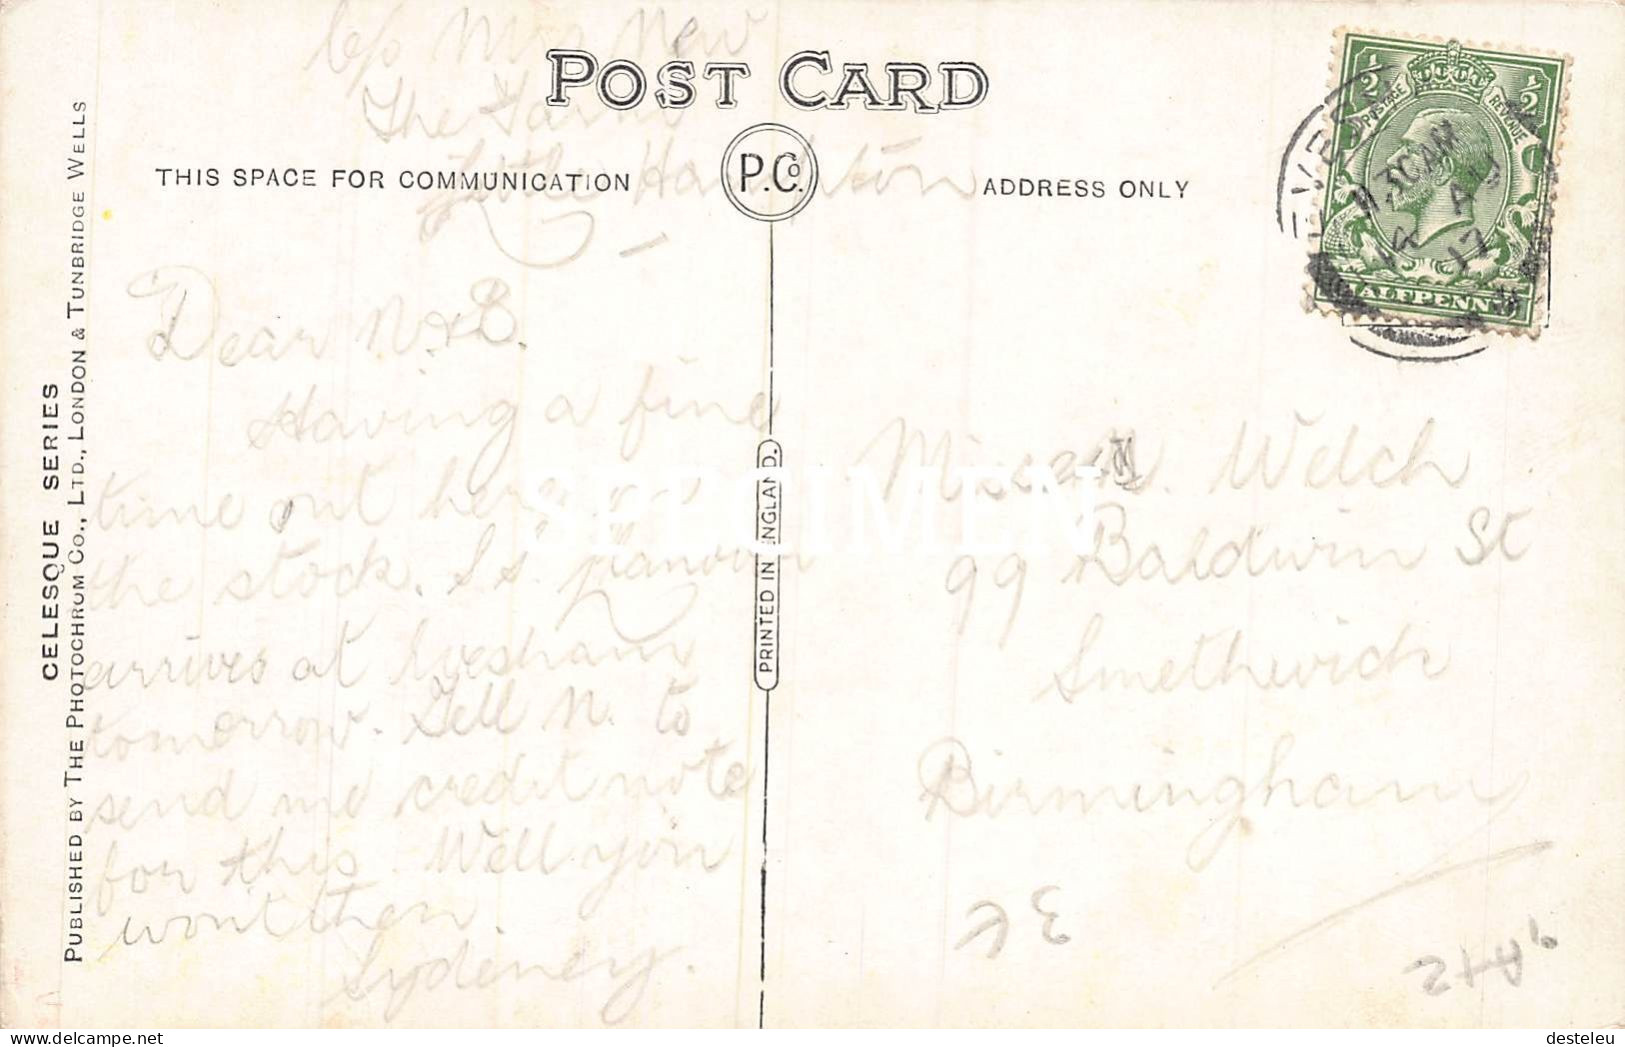 c/o Mrs New
The Farm
Little Hampton
POST CARD
THIS SPACE FOR COMMUNICATION
P.Co.
ADDRESS ONLY
½ ½
POSTAGE REVENUE
HALFPENNY
11 30 AM
18 AU
17
Dear N. & B.
Having a fine
time out here
the stock. S.S.
arrives at Evesham
tomorrow. Tell N. to
send me credit note
for this. Well you
won't then.
Sydeney.
Miss N. Welch
99 Baldwin St
Smethwick
Birmingham
3 €
CELESQUE SERIES
PUBLISHED BY THE PHOTOCHROM CO., LTD., LONDON & TUNBRIDGE WELLS
PRINTED IN ENGLAND.
SPECIMEN
www.delcampe.net
desteleu